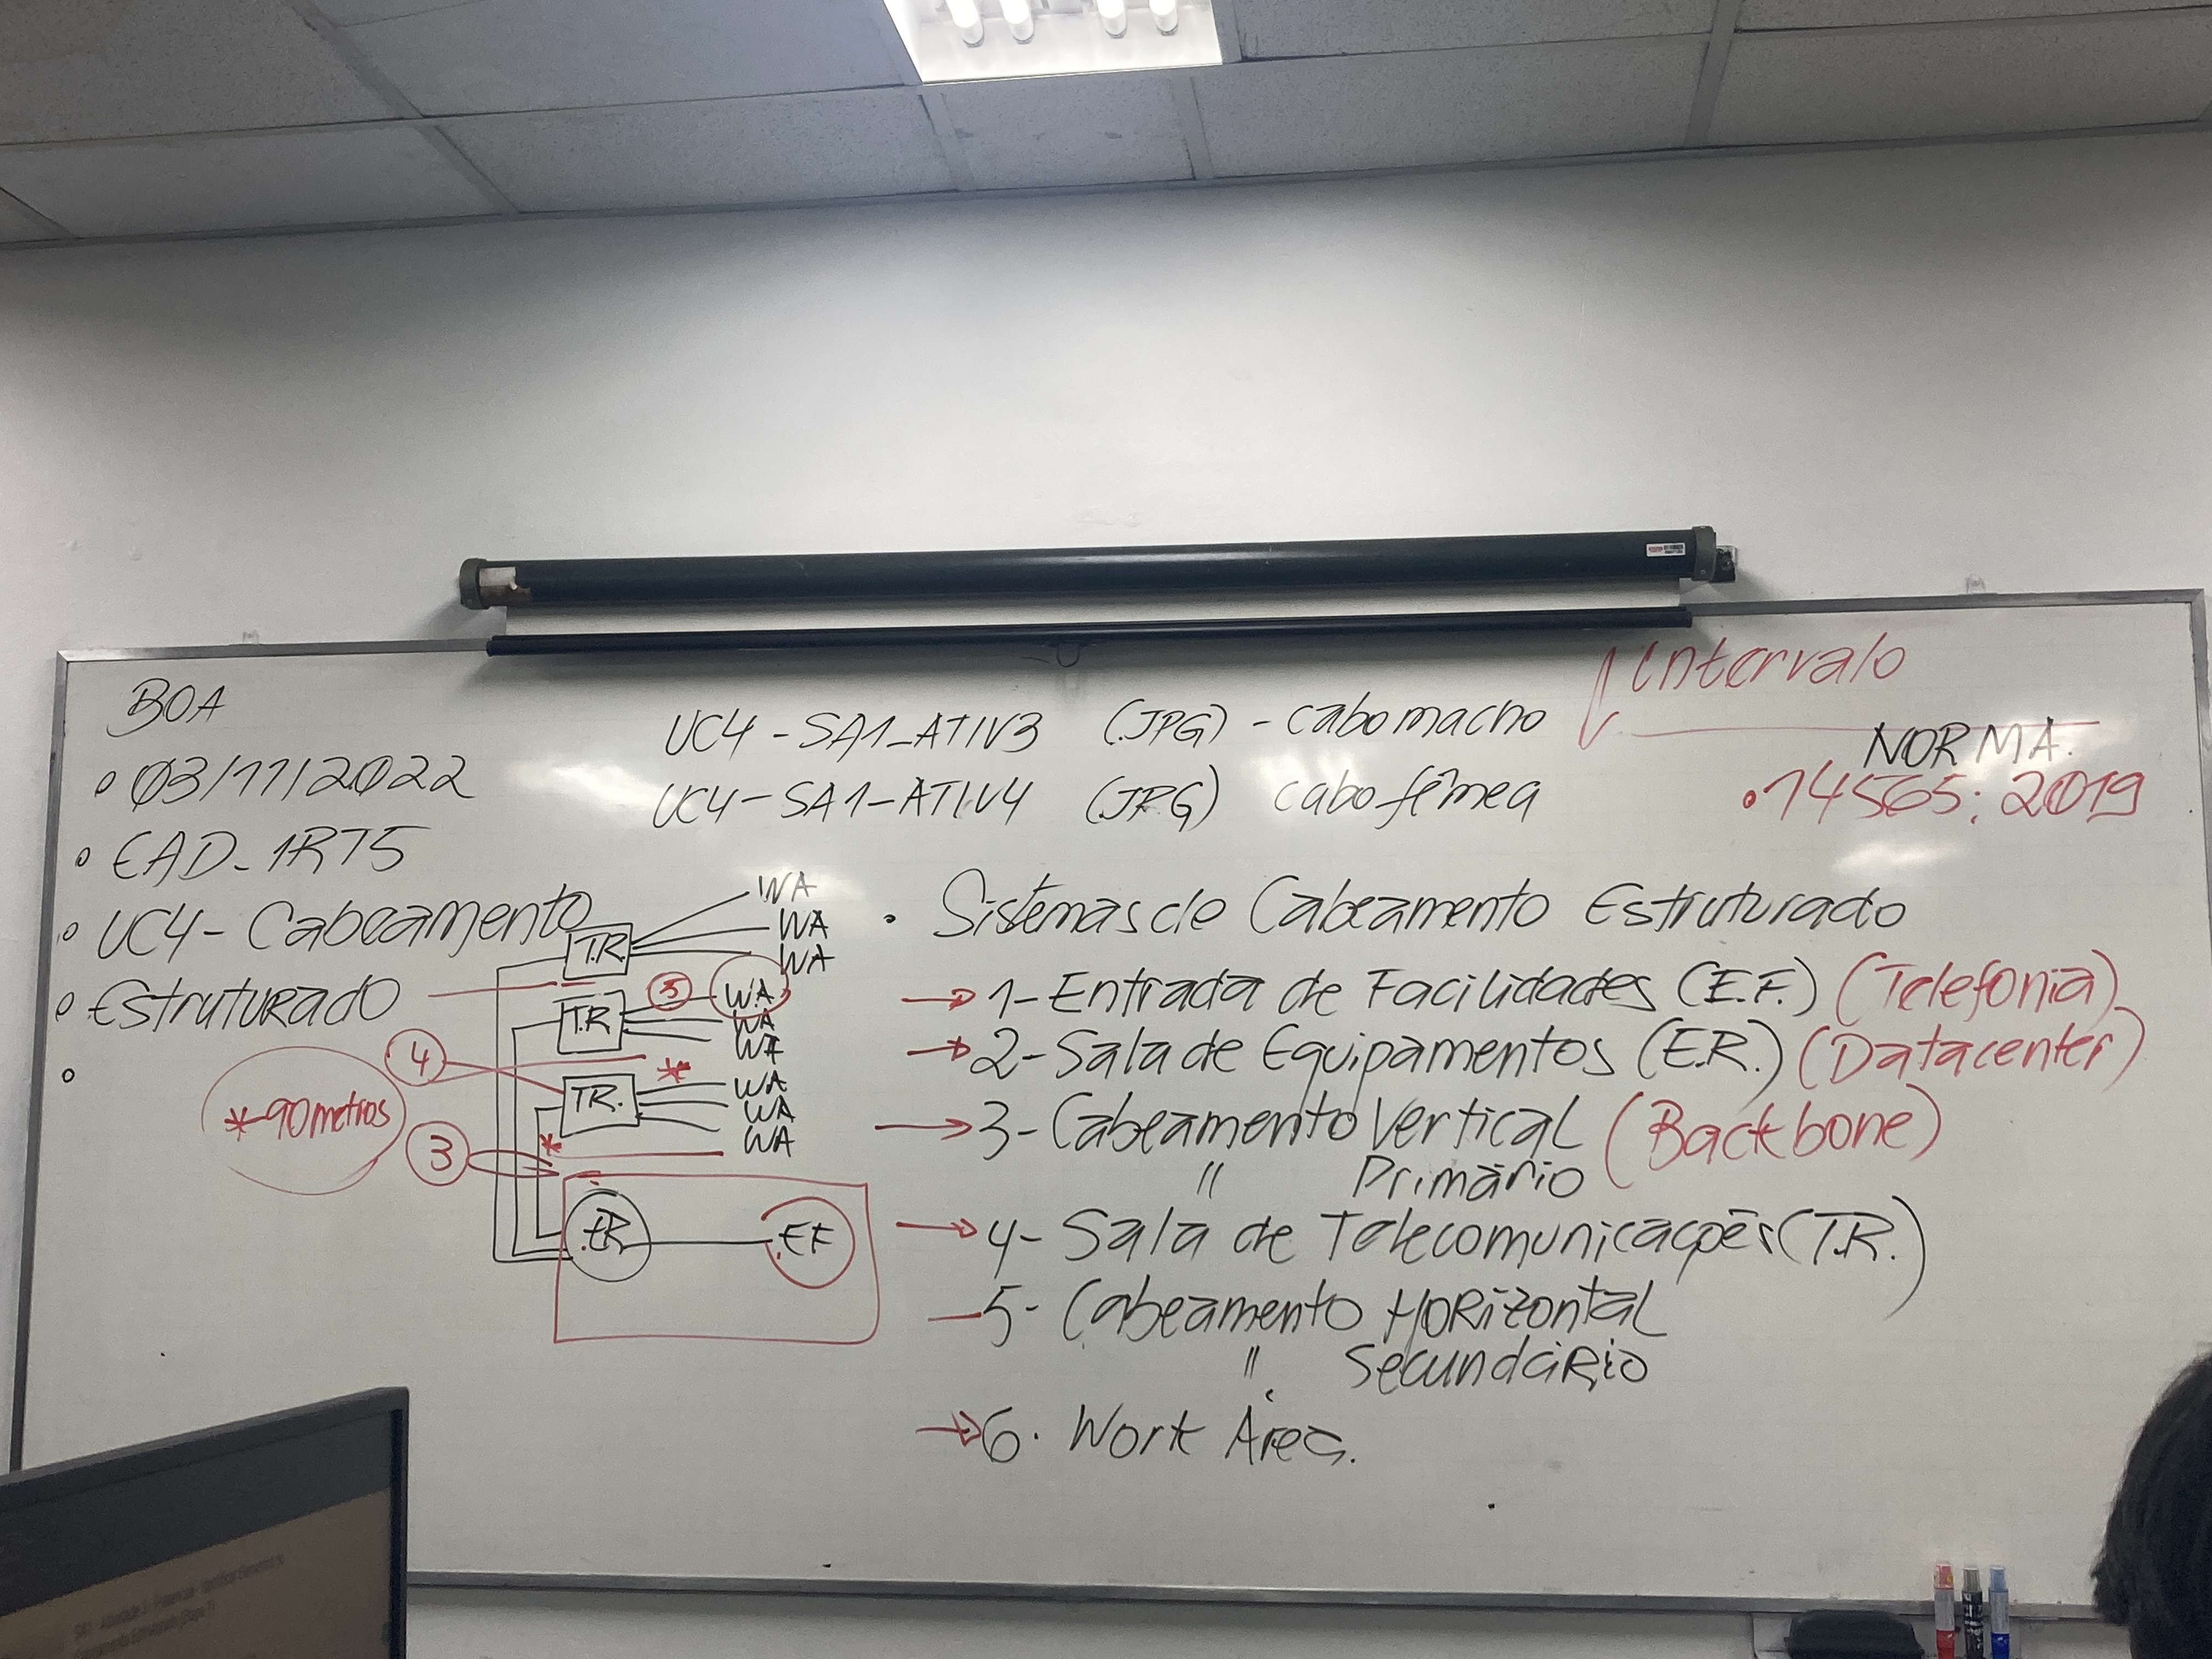 BOA
• 03/11/2022
• EAD_1RT5
• UC4 - Cabeamento
• Estruturado
•
UC4 - SA1_ATIV3 (JPG) - cabo macho
UC4 - SA1 - ATIV4 (JPG) cabo fêmea
Intervalo
NORMA.
• 14565:2019
T.R. WA
WA
WA
T.R 5 WA
WA
WA
4
T.R. * WA
WA
WA
* - 90 metros
3 *
ER EF
• Sistemas de Cabeamento Estruturado
→ 1- Entrada de Facilidades (E.F.) (Telefonia)
→ 2- Sala de Equipamentos (E.R.) (Datacenter)
→ 3- Cabeamento Vertical (Backbone)
" Primário
→ 4- Sala de Telecomunicações (T.R.)
— 5- Cabeamento Horizontal
" Secundário
→ 6. Work Área.